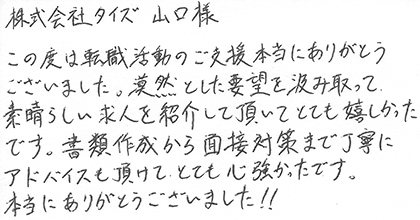 株式会社タイズ 山口様
この度は転職活動のご支援本当にありがとう
ございました。漠然とした要望を汲み取って
素晴らしい求人を紹介して頂いてとても嬉しかった
です。書類作成から面接対策まで丁寧に
アドバイスも頂けてとても心強かったです。
本当にありがとうございました!!